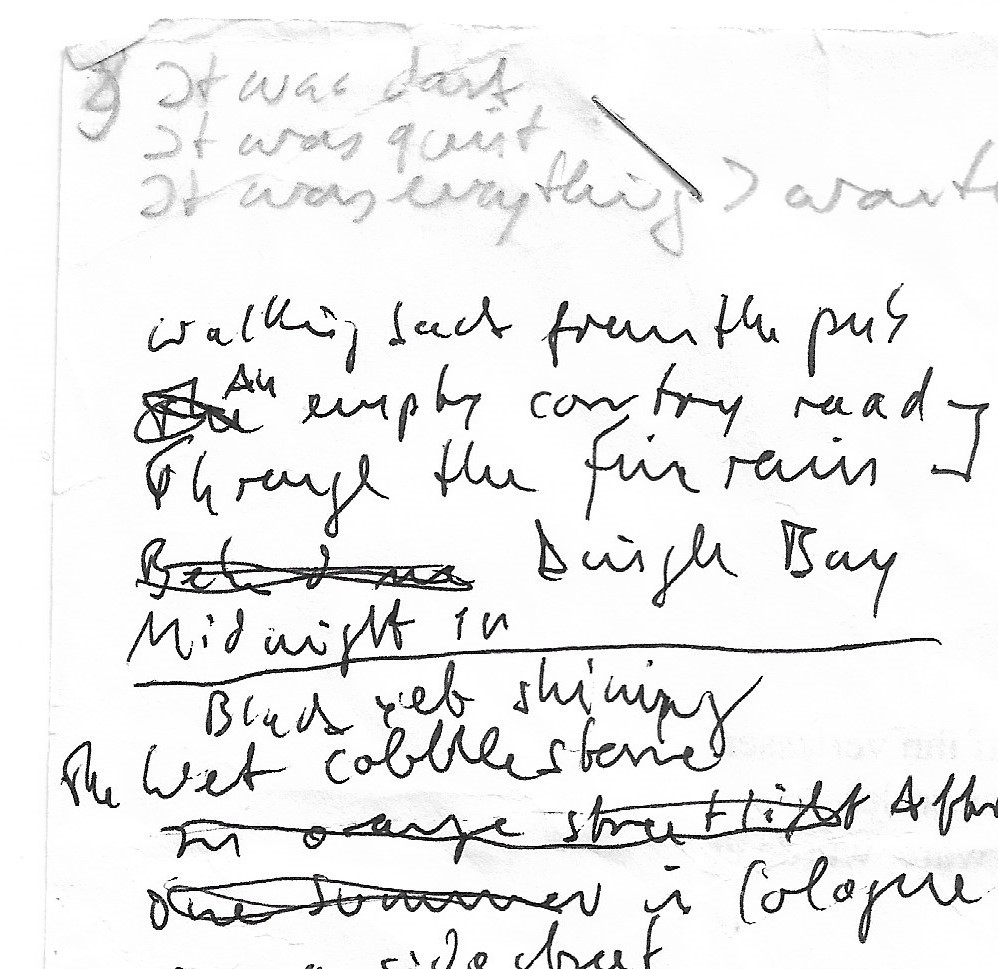 It was dark
It was quiet
It was everything I want
walking back from the pub
An empty country road
Through the fine rain
Dingle Bay
Midnight in
Black web shining
The wet cobblestone
In orange streetlight After
One Summer in Cologne
side street